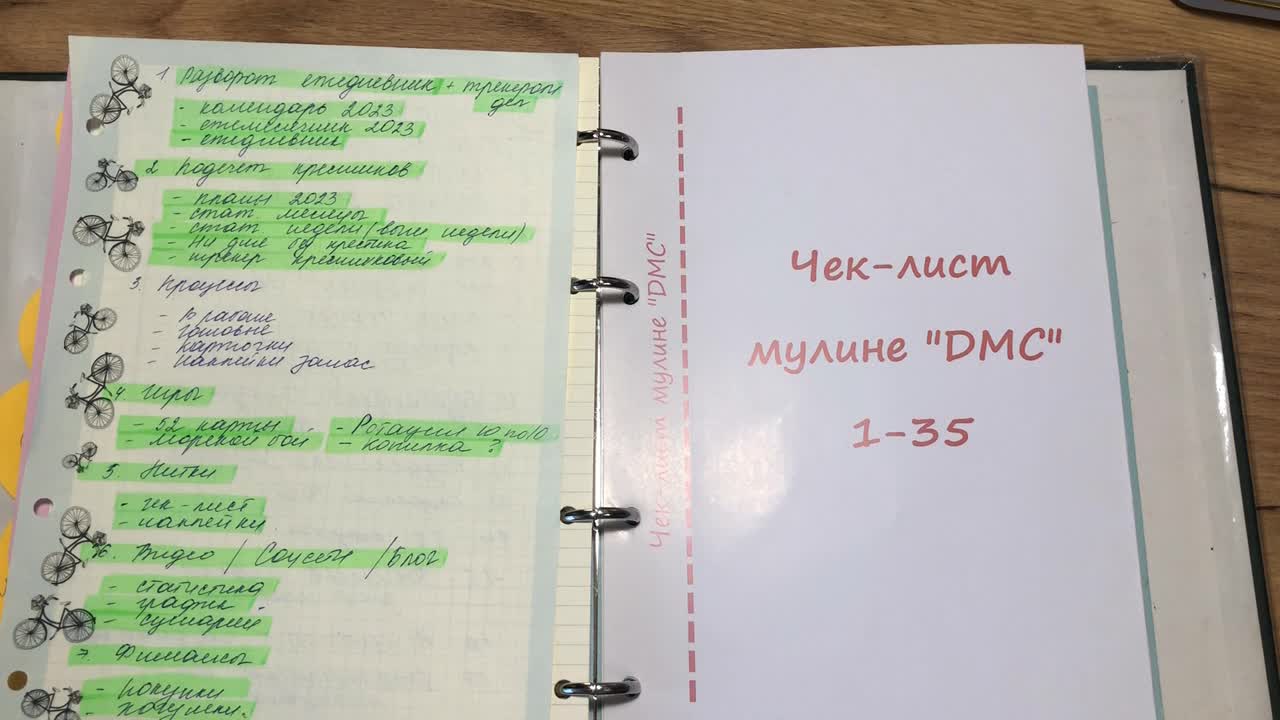 1 Разворот ежедневник + трекером
дел
- календарь 2023
- ежемесячник 2023
- ежедневник
2 Подсчет крестиков
- планы 2023
- стат месяцы
- стат недели (выш недели)
- Ни дня без крестика
- трекер крестиковый
3. Процессы
- В работе
- Готовые
- карточки
- наклейки запас
4. Игры
- 52 карты
- Ротация 10 по 10
- морской бой
- копилка ?
5. Нитки
- чек-лист
- наклейки
6. Видео / Соцсети / Блог
- статистика
- график
- сценарий
7. Финансы
- покупки
Чек-лист мулине "DMC"
Чек-лист
мулине "DMC"
1-35